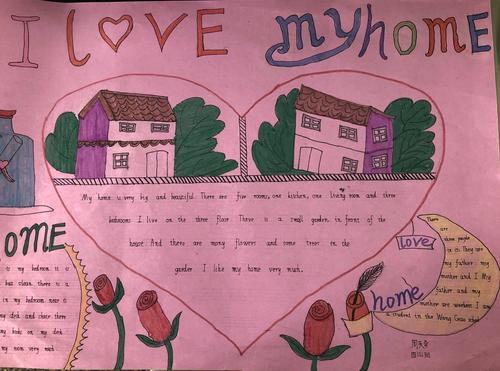 I LOVE myhOmE
My home is very big and beautiful. There are five rooms, one kitchen, one living room and three
bedrooms I live on the three floor. There is a small garden in front of the
house. And there are many flowers and some trees in the
garden I like my home very much.
OME
is my bedroom is a
has clean. there is a
in my bedroom near is
my desk and chair there
my books on my desk
my room very much.
love
home
There
are
three people
in it. They are
my father my
mother and I My
father and my
mother are workers. I am
a student in the Wang Guo school